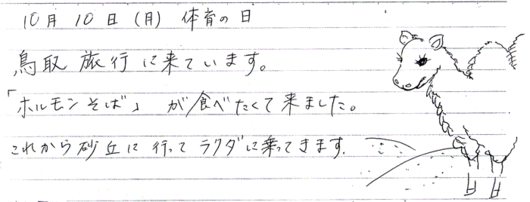 10月10日(月) 体育の日
鳥取旅行に来ています。
「ホルモンそば」が食べたくて来ました。
これから砂丘に行ってラクダに乗ってきます.